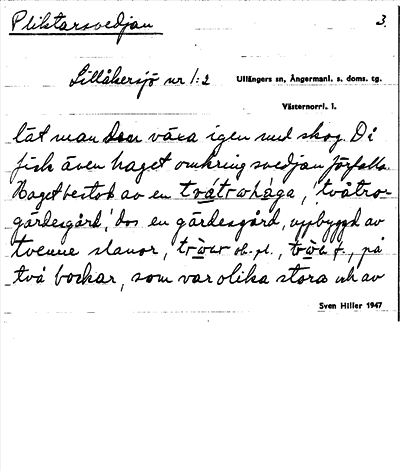 Pliktarsvedjan
3.
Lillåkersjö nr 1:2
Ullångers sn, Ångermanl. s. doms. tg.
Västernorrl. l.
lät man den växa igen med skog. Di
fick även haget omkring svedjan förfalla.
Haget bestod av en tvåtrohaga, 'tvåtro-
gärdesgård,' dvs en gärdesgård, uppbyggd av
tvenne slanor, ob. pl., f., på
två bockar, som var olika stora och av
Sven Hiller 1947